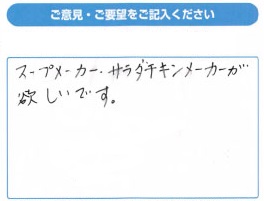 ご意見・ご要望をご記入ください
スープメーカー・サラダチキンメーカーが
欲しいです。